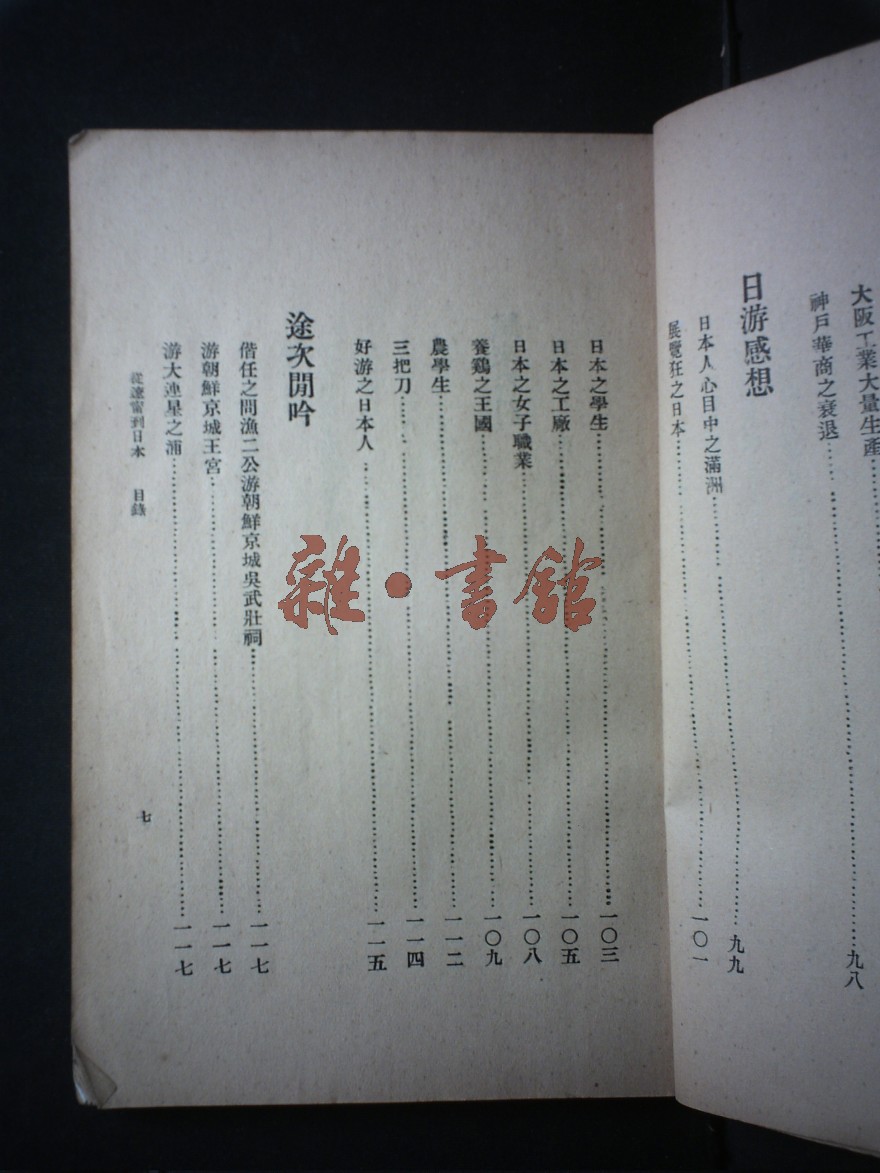 大阪工業大量生產……九八
神戶華商之衰退……
日游感想
日本人心目中之滿洲……九九
展覽狂之日本……一〇一
日本之學生……一〇三
日本之工廠……一〇五
日本之女子職業……一〇八
養鷄之王國……一〇九
農學生……一一二
三把刀……一一四
好游之日本人……一一五
途次閒吟
偕任之問漁二公游朝鮮京城吳武壯祠……一一七
游朝鮮京城王宮……一一七
游大連星之浦……一一七
從遼甯到日本 目錄
七
雜·書館